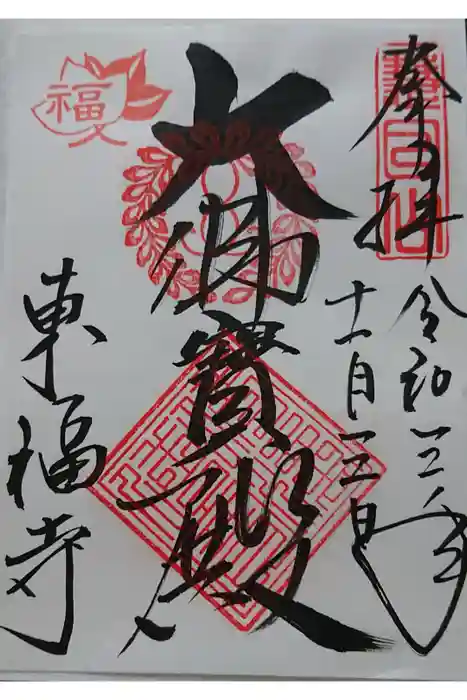 奉拝
慧日山
令和三年
十一月三日
大佛寶殿
福
東福寺